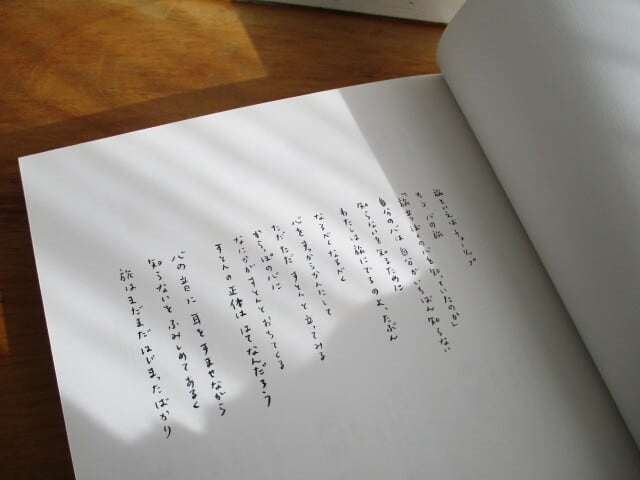 旅といえばチューリップ
自分の心は自分がいちばん知らない
知らないを知るために
わたしは旅にでるのよ、たぶん
なるべくなるべく
心をすっからかんにして
ただただ すとんと立ってみる
からっぽの心に
なにかがすとんとおちてくる
すとんの正体は はてなんだろう
心の音に 耳をすませながら
知らないをふみしめてあるく
旅はまだまだはじまったばかり